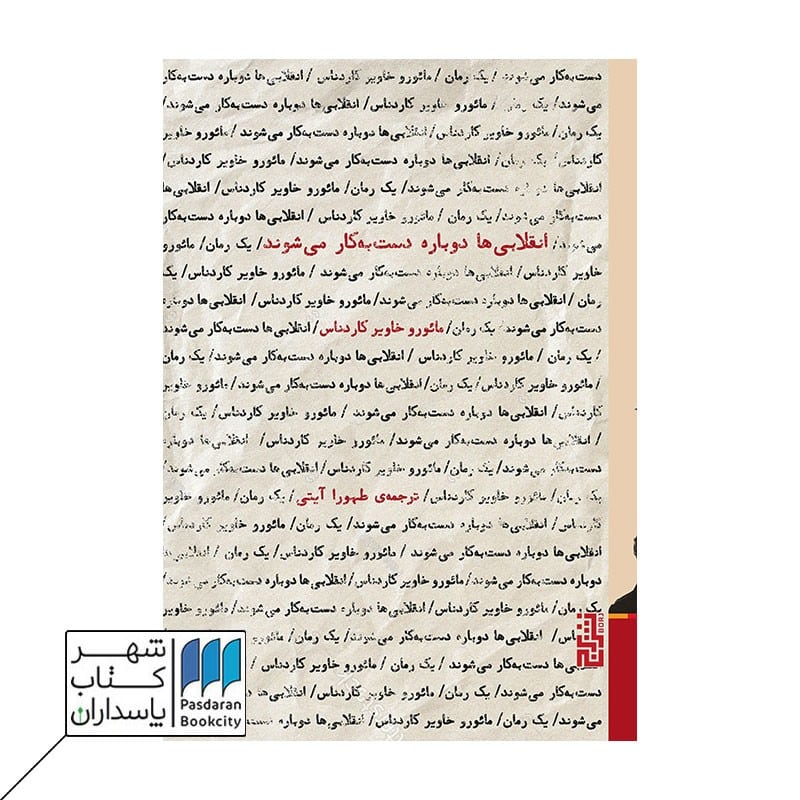 دست‌به‌کار می‌شوند / یک رمان / مائورو خاویر کاردناس / انقلابی‌ها دوباره دست‌به‌کار
می‌شوند/ یک رمان / مائورو خاویر کاردناس/ انقلابی‌ها دوباره دست‌به‌کار می‌شوند/
یک رمان/ مائورو خاویر کاردناس/ انقلابی‌ها دوباره دست‌به‌کار می‌شوند / مائورو خاویر
کاردناس/ یک رمان/ انقلابی‌ها دوباره دست‌به‌کار می‌شوند/ مائورو خاویر کاردناس/
انقلابی‌ها دوباره دست‌به‌کار می‌شوند/ یک رمان/ مائورو خاویر کاردناس/ انقلابی‌ها
دست‌به‌کار می‌شوند/ یک رمان / مائورو خاویر کاردناس / انقلابی‌ها دوباره دست‌به‌کار
می‌شوند/ انقلابی‌ها دوباره دست‌به‌کار می‌شوند/ یک رمان/ مائورو
خاویر کاردناس/ انقلابی‌ها دوباره دست‌به‌کار می‌شوند / مائورو خاویر کاردناس/ یک
رمان / انقلابی‌ها دوباره دست‌به‌کار می‌شوند/ مائورو خاویر کاردناس/ انقلابی‌ها دوباره
دست‌به‌کار می‌شوند/ یک رمان/ مائورو خاویر کاردناس/ انقلابی‌ها دست‌به‌کار می‌شوند
/ یک رمان / مائورو خاویر کاردناس / انقلابی‌ها دوباره دست‌به‌کار می‌شوند/ یک رمان
/ مائورو خاویر کاردناس/ یک رمان/ انقلابی‌ها دوباره دست‌به‌کار می‌شوند/ مائورو خاویر
کاردناس/ انقلابی‌ها دوباره دست‌به‌کار می‌شوند / مائورو خاویر کاردناس/ یک رمان
/ انقلابی‌ها دوباره دست‌به‌کار می‌شوند/ مائورو خاویر کاردناس/ انقلابی‌ها دوباره
دست‌به‌کار می‌شوند/ یک رمان/ مائورو خاویر کاردناس/ انقلابی‌ها دست‌به‌کار می‌شوند/
یک رمان/ مائورو خاویر کاردناس/ ترجمه‌ی طهورا آیتی/ یک رمان/ مائورو خاویر
کاردناس/ انقلابی‌ها دوباره دست‌به‌کار می‌شوند/ یک رمان/ مائورو خاویر کاردناس/
انقلابی‌ها دوباره دست‌به‌کار می‌شوند / مائورو خاویر کاردناس/ یک رمان / انقلابی‌ها
دوباره دست‌به‌کار می‌شوند/ مائورو خاویر کاردناس/ انقلابی‌ها دوباره دست‌به‌کار می‌شوند/
یک رمان/ مائورو خاویر کاردناس/ انقلابی‌ها دوباره دست‌به‌کار می‌شوند/ مائورو خاویر
انقلابی‌ها دوباره دست‌به‌کار می‌شوند/ یک رمان/ مائورو خاویر کاردناس/
دست‌به‌کار می‌شوند / یک رمان / مائورو خاویر کاردناس / انقلابی‌ها
دست‌به‌کار می‌شوند/ یک رمان/ مائورو خاویر کاردناس/ انقلابی‌ها
می‌شوند/ یک رمان/ مائورو خاویر کاردناس/ انقلابی‌ها دوباره
برج
BORJ
شهر
کتاب
پاسداران
Pasdaran
Bookcity